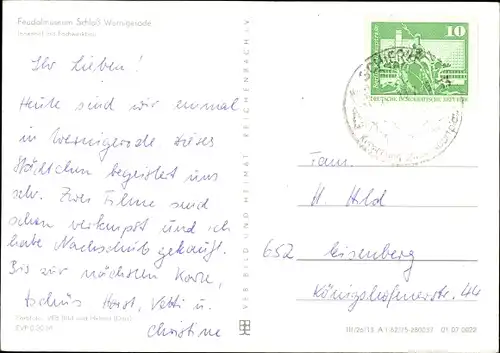 Feudalmuseum Schloß Wernigerode
Innenhof mit Fachwerkbau
Ihr Lieben!
Heute sind wir einmal
in Wernigerode. Dieses
Städtchen begeistert uns
sehr. Zwei Filme sind
schon verknipst und ich
habe Nachschub gekauft.
Bis zur nächsten Karte,
tschüs Horst, Vetti u.
Christine
VEB Bild und Heimat
EVP 0,20 M
VEB BILD UND HEIMAT REICHENBACH i. V.
10
DEUTSCHE DEMOKRATISCHE REPUBLIK
SCHIERKE
Fam.
H. Hild
652 Eisenberg
Königshofenerstr. 44
01 07 0022